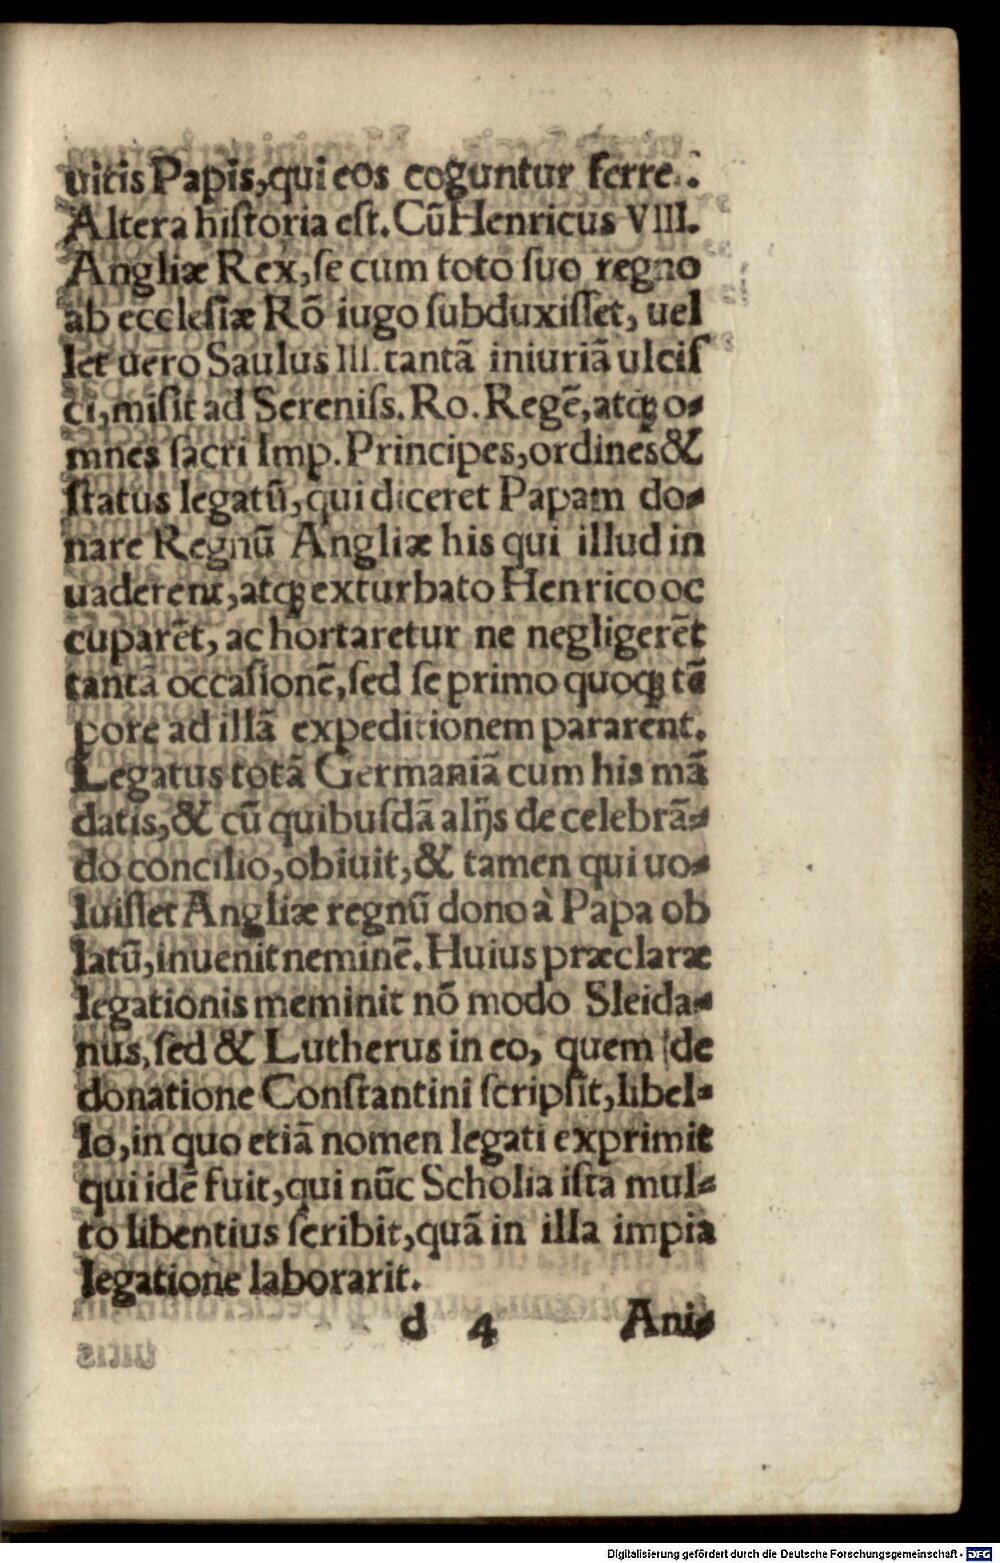 uitis Papis, qui eos coguntur ferre.
Altera historia est. Cū Henricus VIII.
Angliæ Rex, se cum toto suo regno
ab ecclesiæ Rō iugo subduxisset, uel
let uero Saulus III. tantā iniuriā ulcis
ci, misit ad Sereniss. Ro. Regē, atq; o-
mnes sacri Imp. Principes, ordines &
status legatū, qui diceret Papam do-
nare Regnū Angliæ his qui illud in
uaderent, atq; exturbato Henrico oc
cuparēt, ac hortaretur ne negligerēt
tantā occasionē, sed se primo quoq; tē
pore ad illā expeditionem pararent.
Legatus totā Germaniā cum his mā
datis, & cū quibusdā alijs de celebrā-
do concilio, obiuit, & tamen qui uo-
luisset Angliæ regnū dono à Papa ob
latū, inuenit neminē. Huius præclaræ
legationis meminit nō modo Sleida-
nus, sed & Lutherus in eo, quem de
donatione Constantini scripsit, libel-
lo, in quo etiā nomen legati exprimit
qui idē fuit, qui nūc Scholia ista mul-
to libentius scribit, quā in illa impia
legatione laborarit.
d 4 Ani-
Digitalisierung gefördert durch die Deutsche Forschungsgemeinschaft - DFG